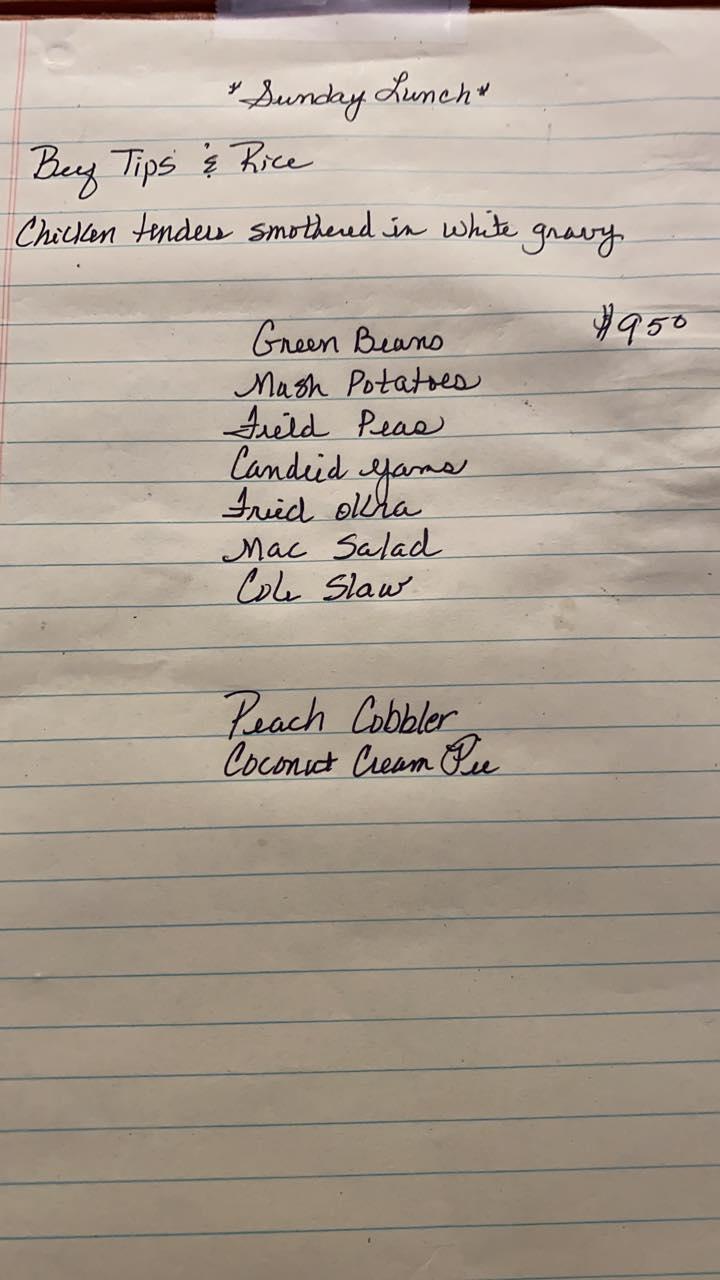 *Sunday Lunch*
Beef Tips & Rice
Chicken tenders smothered in white gravy
Green Beans $9.50
Mash Potatoes
Field Peas
Candied yams
Fried okra
Mac Salad
Cole Slaw
Peach Cobbler
Coconut Cream Pie